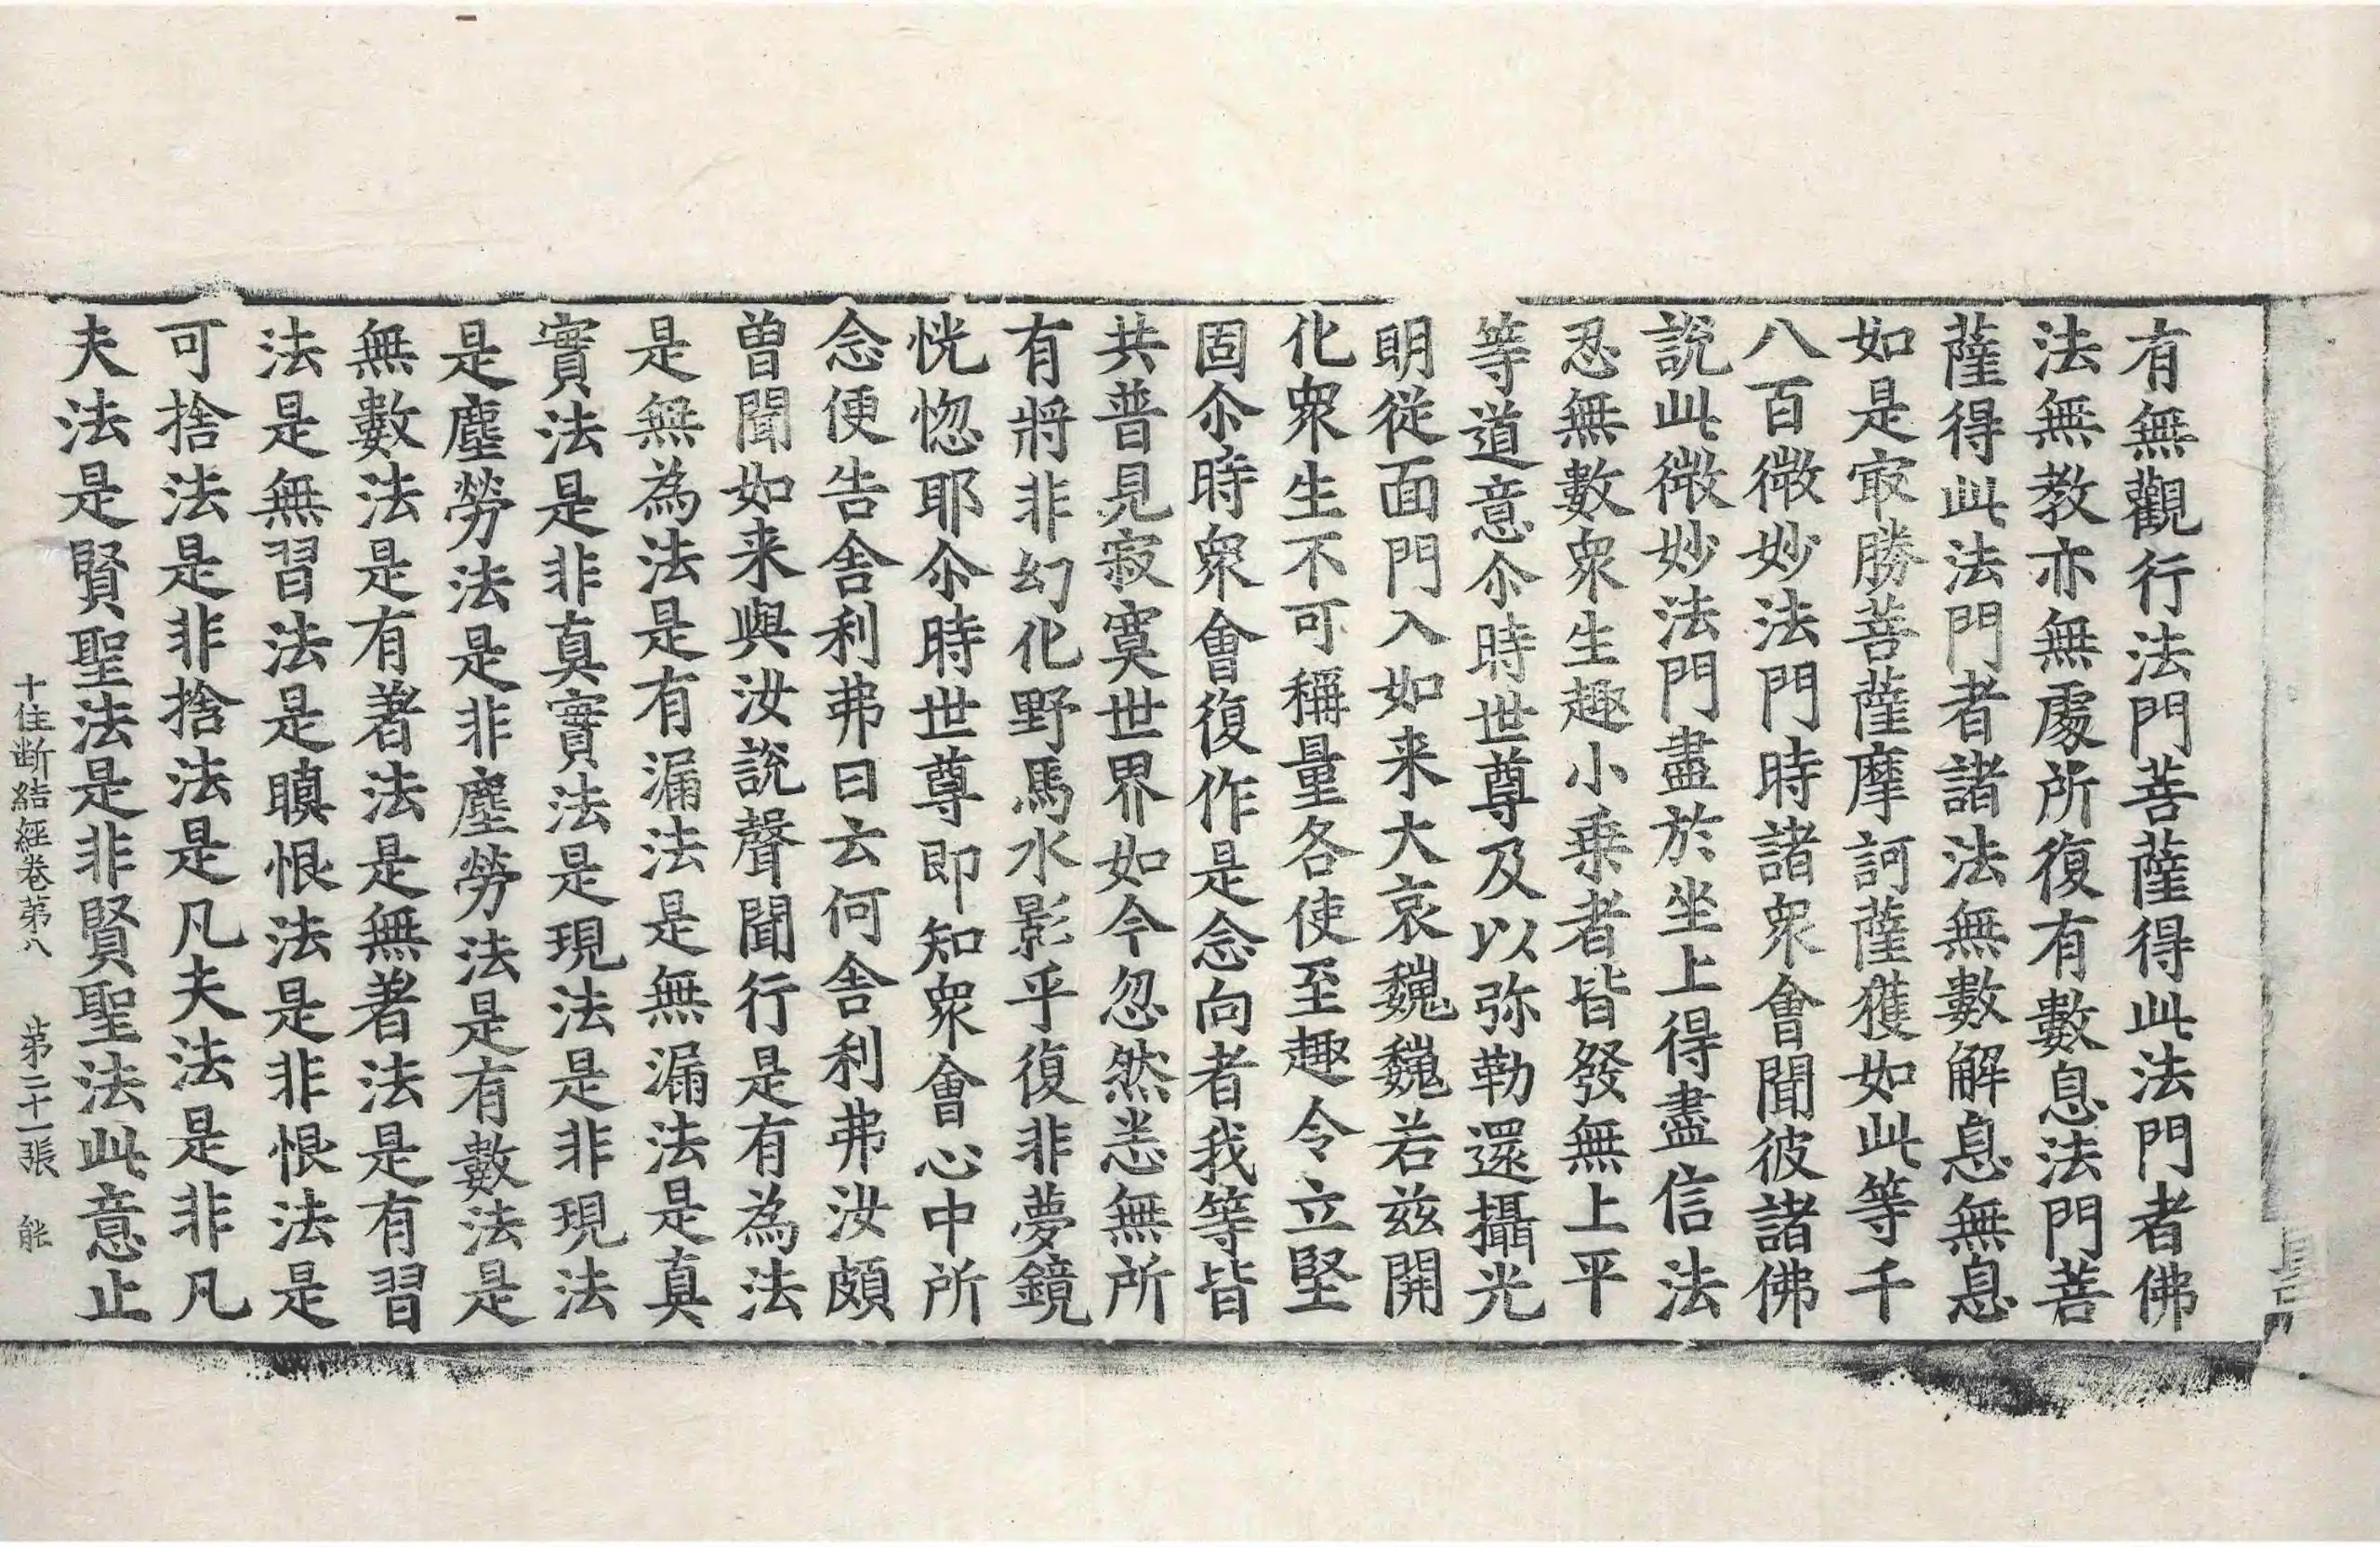 有無觀行法門菩薩得此法門者佛
法無教亦無處所復有數息法門菩
薩得此法門者諸法無數解息無息
如是㝡勝菩薩摩訶薩獲如此等千
八百微妙法門時諸衆會聞彼諸佛
說此微妙法門盡於坐上得盡信法
忍無數衆生趣小乗者皆發無上平
等道意尒時世尊及以弥勒還攝光
明從面門入如来大哀巍巍若兹開
化衆生不可稱量各使至趣令立堅
固尒時衆會復作是念向者我等皆
共普見寂寞世界如今忽然恙無所
有將非幻化野馬水影乎復非夢鏡
恍惚耶尒時世尊即知衆會心中所
念便告舎利弗曰云何舎利弗汝頗
曽聞如来與汝說聲聞行是有為法
是無為法是有漏法是無漏法是真
實法是非真實法是現法是非現法
是塵勞法是非塵勞法是有數法是
無數法是有著法是無著法是有習
法是無習法是瞋恨法是非恨法是
可捨法是非捨法是凡夫法是非凡
夫法是賢聖法是非賢聖法此意止
十住断結經卷苐八 苐二十一張 能